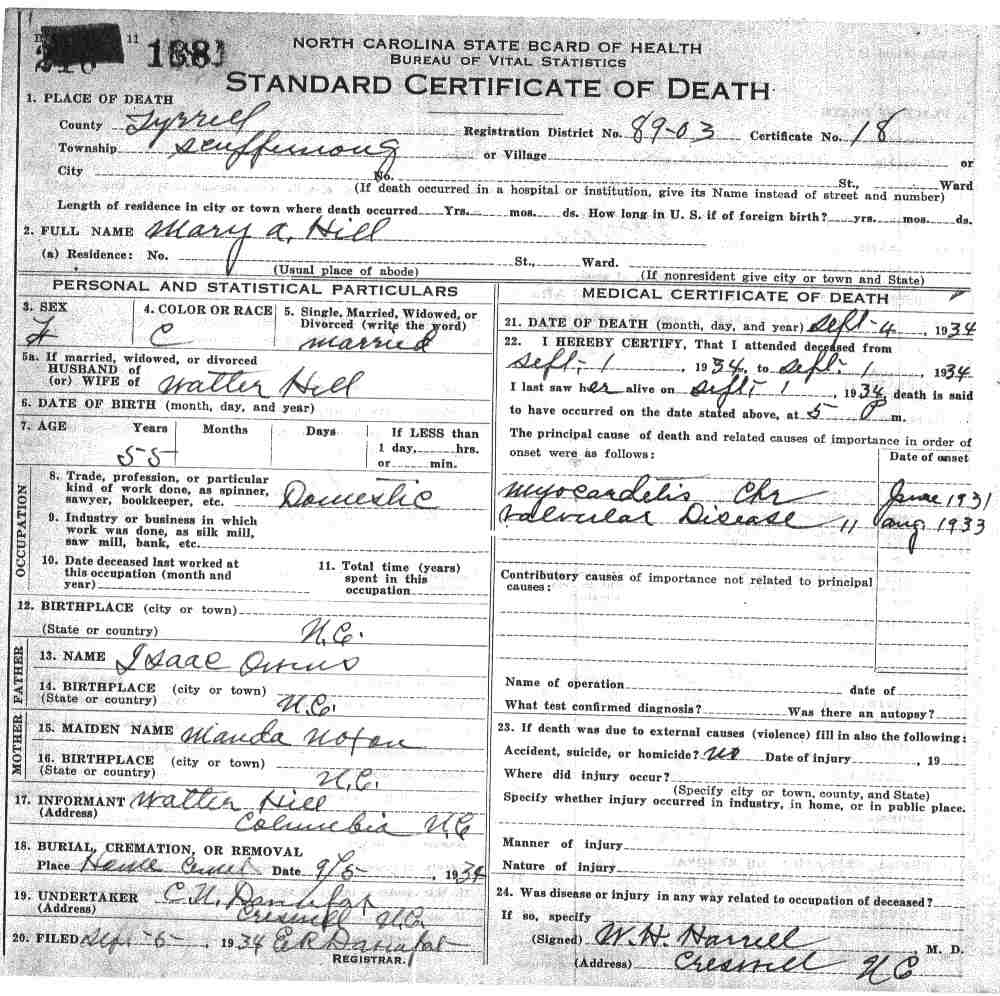 11
NORTH CAROLINA STATE BOARD OF HEALTH
BUREAU OF VITAL STATISTICS
STANDARD CERTIFICATE OF DEATH
1. PLACE OF DEATH
County Tyrrell Registration District No. 89-03 Certificate No. 18
Township Scuppernong or Village or
City No. St., Ward
(If death occurred in a hospital or institution, give its Name instead of street and number)
Length of residence in city or town where death occurred Yrs. mos. ds. How long in U. S. if of foreign birth? yrs. mos. ds.
2. FULL NAME Mary A. Hill
(a) Residence: No. St., Ward.
(Usual place of abode) (If nonresident give city or town and State)
PERSONAL AND STATISTICAL PARTICULARS
3. SEX 4. COLOR OR RACE 5. Single, Married, Widowed, or
Divorced (write the word)
F C married
5a. If married, widowed, or divorced
HUSBAND of
(or) WIFE of Walter Hill
6. DATE OF BIRTH (month, day, and year)
7. AGE Years Months Days If LESS than
1 day, hrs.
55 or min.
OCCUPATION
8. Trade, profession, or particular
kind of work done, as spinner,
sawyer, bookkeeper, etc. Domestic
9. Industry or business in which
work was done, as silk mill,
saw mill, bank, etc.
10. Date deceased last worked at
this occupation (month and
year)
11. Total time (years)
spent in this
occupation
12. BIRTHPLACE (city or town)
(State or country) N.C.
FATHER
13. NAME Isaac Owens
14. BIRTHPLACE (city or town)
(State or country) N.C.
MOTHER
15. MAIDEN NAME Manda
16. BIRTHPLACE (city or town)
(State or country) N.C.
17. INFORMANT Walter Hill
(Address) Columbia N.C.
18. BURIAL, CREMATION, OR REMOVAL
Place Home Cemet Date 9/5, 1934
19. UNDERTAKER C. N.
(Address) Creswell N.C.
20. FILED Sept-5-, 1934 E.R.
REGISTRAR.
MEDICAL CERTIFICATE OF DEATH
21. DATE OF DEATH (month, day, and year) Sept-4, 1934
22. I HEREBY CERTIFY, That I attended deceased from
Sept-1, 1934, to Sept-1, 1934
I last saw her alive on Sept-1, 1934, death is said
to have occurred on the date stated above, at 5 P m.
The principal cause of death and related causes of importance in order of
onset were as follows: Date of onset
Myocardetis Chr June 1931
Valvular Disease " Aug 1933
Contributory causes of importance not related to principal
causes:
Name of operation date of
What test confirmed diagnosis? Was there an autopsy?
23. If death was due to external causes (violence) fill in also the following:
Accident, suicide, or homicide? no Date of injury , 19
Where did injury occur?
(Specify city or town, county, and State)
Specify whether injury occurred in industry, in home, or in public place.
Manner of injury
Nature of injury
24. Was disease or injury in any way related to occupation of deceased?
If so, specify
(Signed) W. H. Harrell, M. D.
(Address) Creswell N C